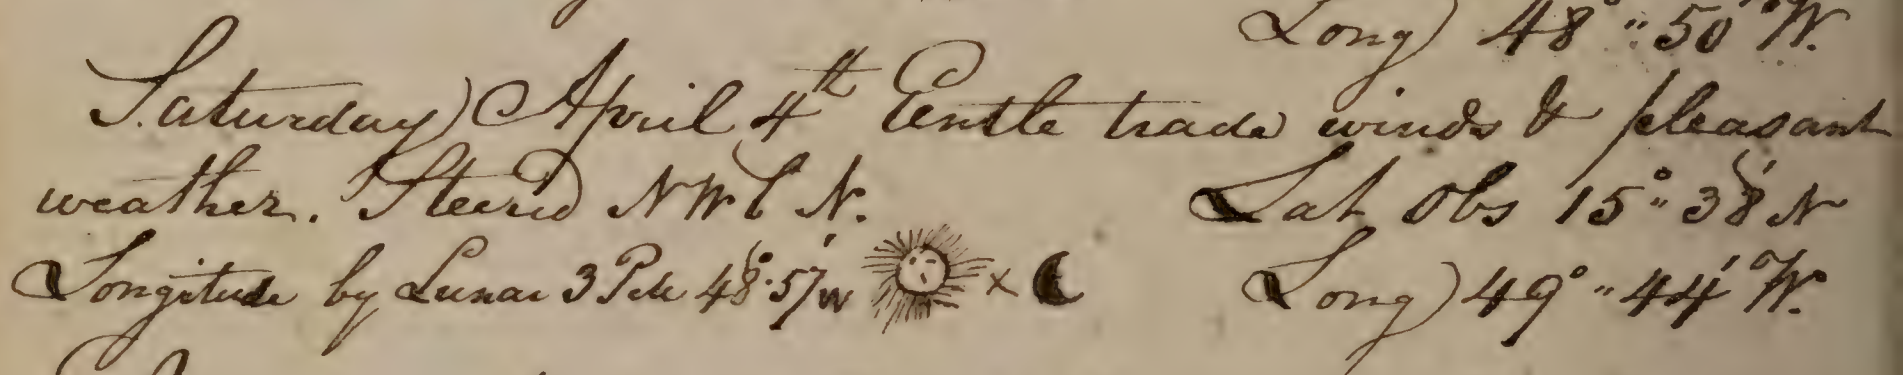 Long) 48°"50' W.
Saturday) April 4th Gentle trade winds & pleasant
weather. Steered NWbN. Lat Obs 15°"38' N
Longitude by Lunar 3 P.M 48°.57' W x Long) 49°"44' W.